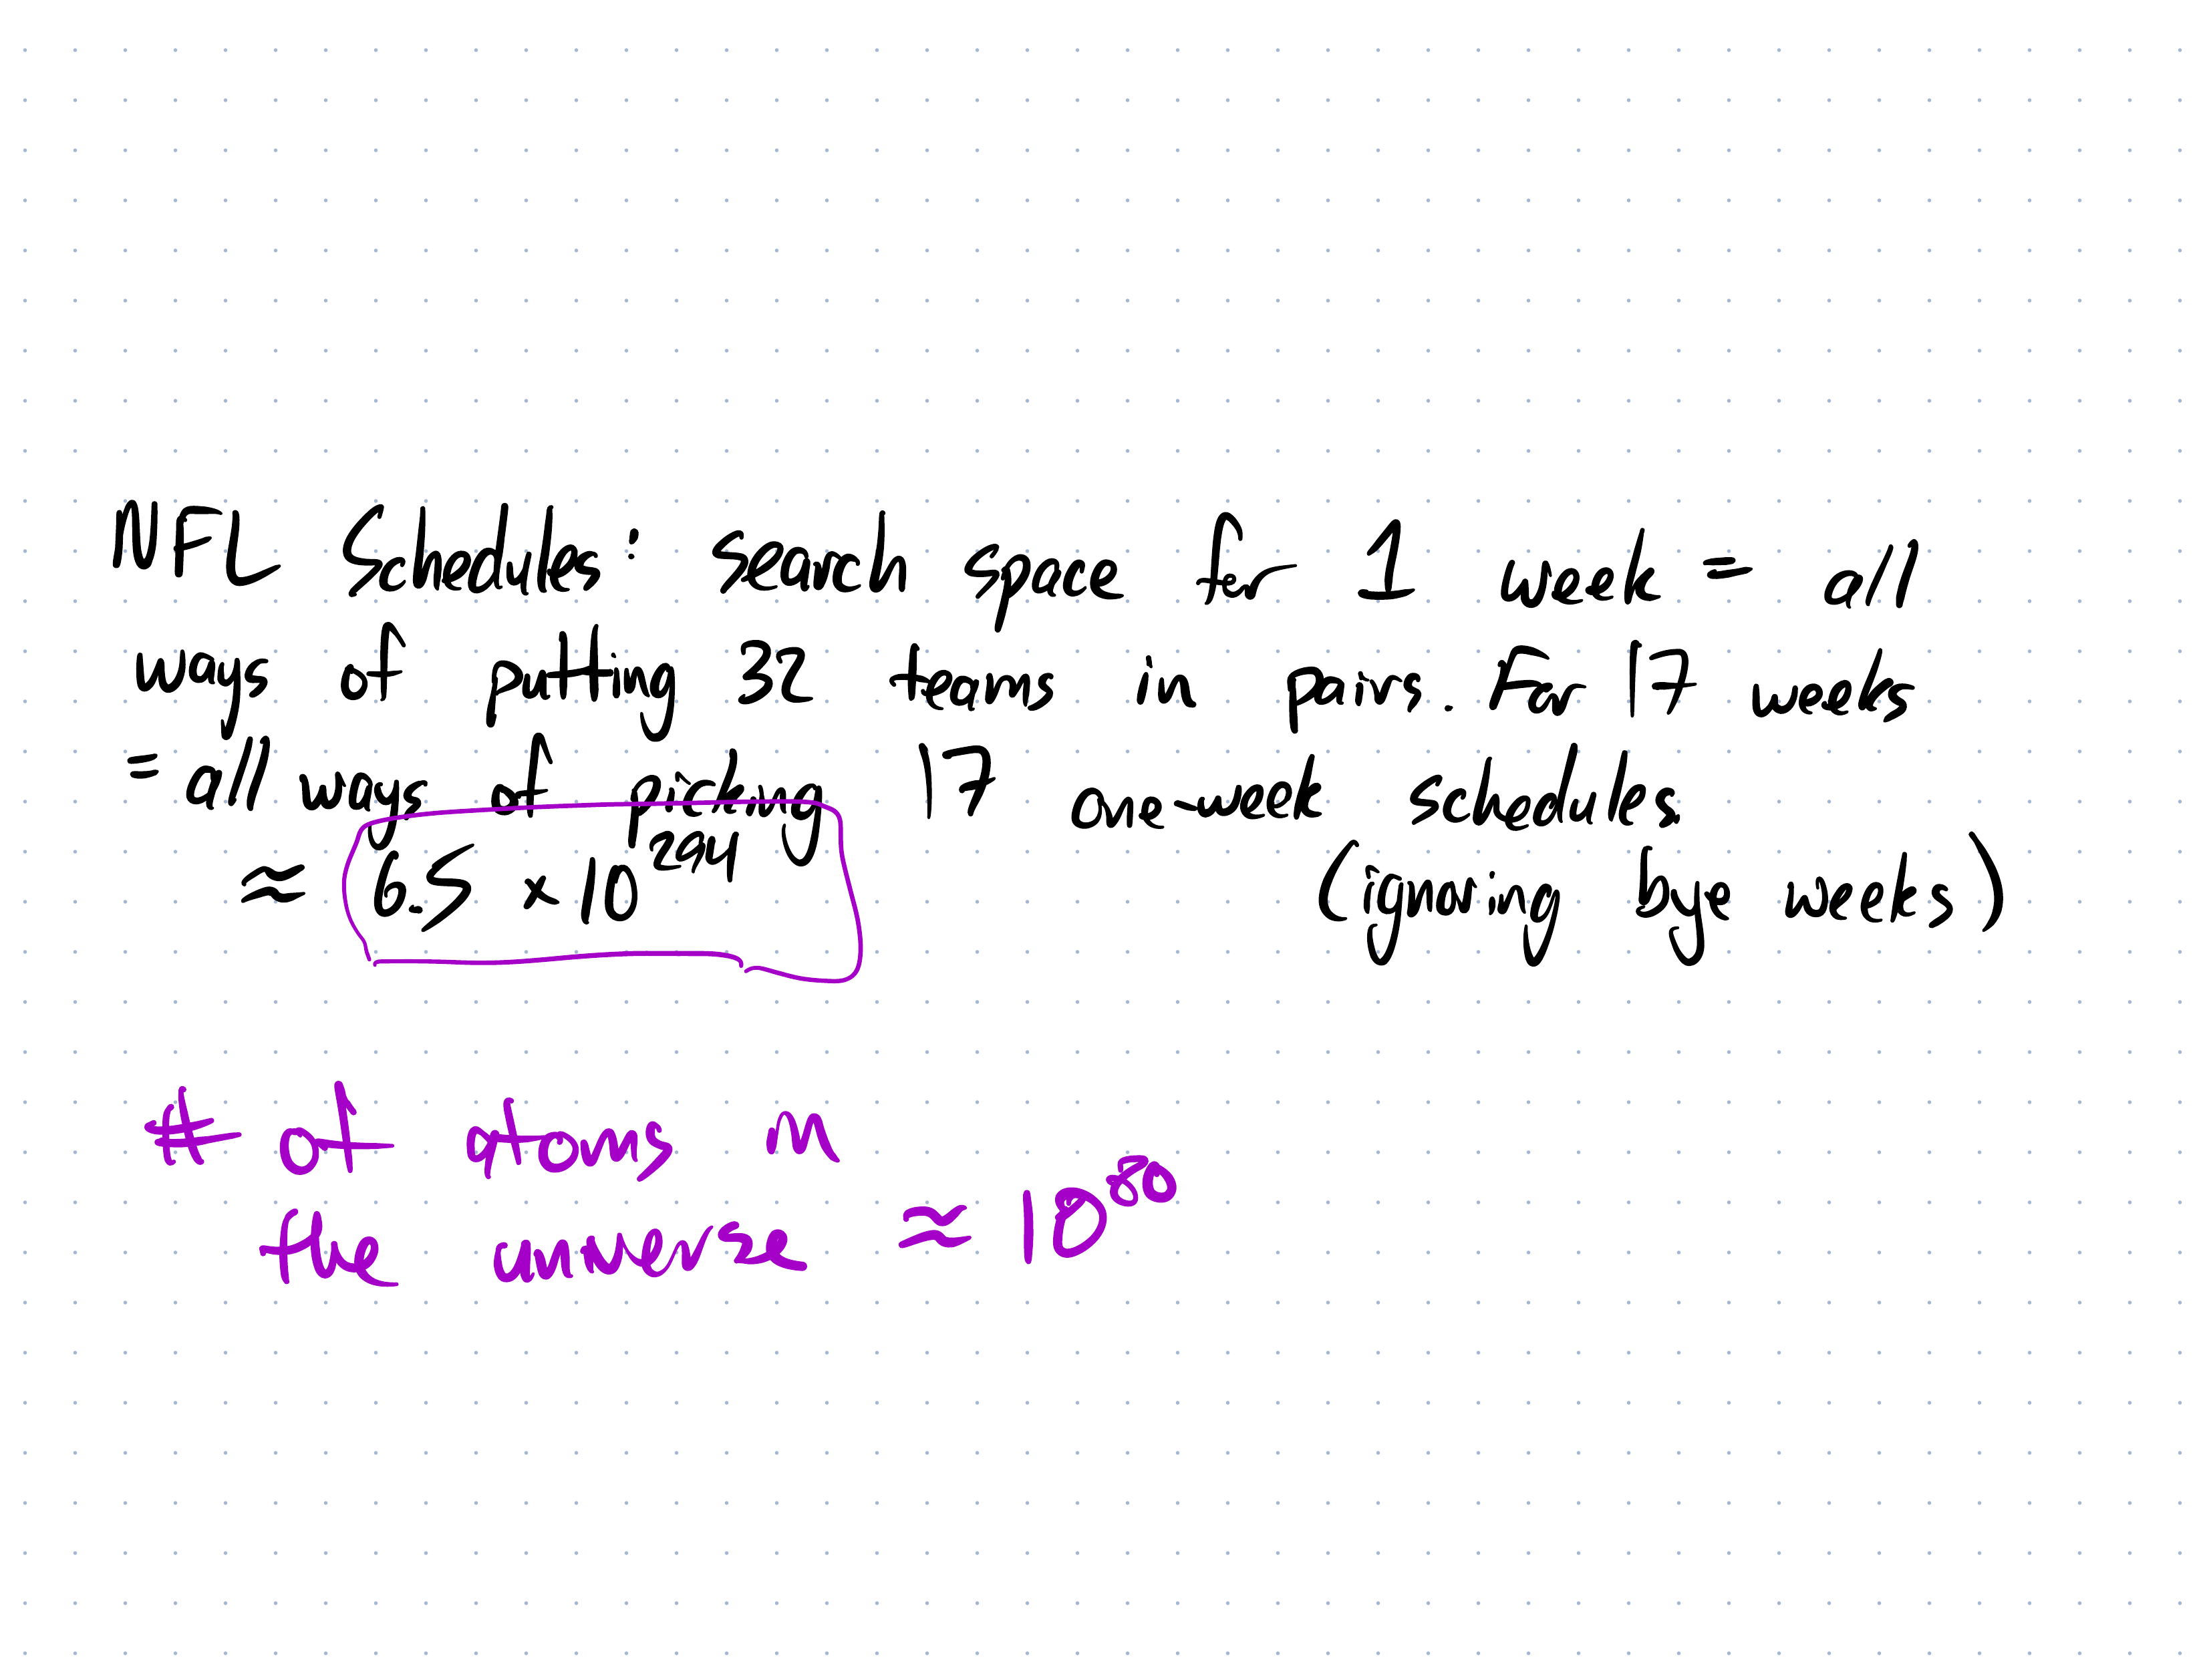 NFL Schedules: search space for 1 week = all
ways of putting 32 teams in pairs. For 17 weeks
= all ways of picking 17 one-week schedules
≈ 6.5 × 10²⁹⁴ (ignoring bye weeks)
# of atoms in
the universe ≈ 10⁸⁰